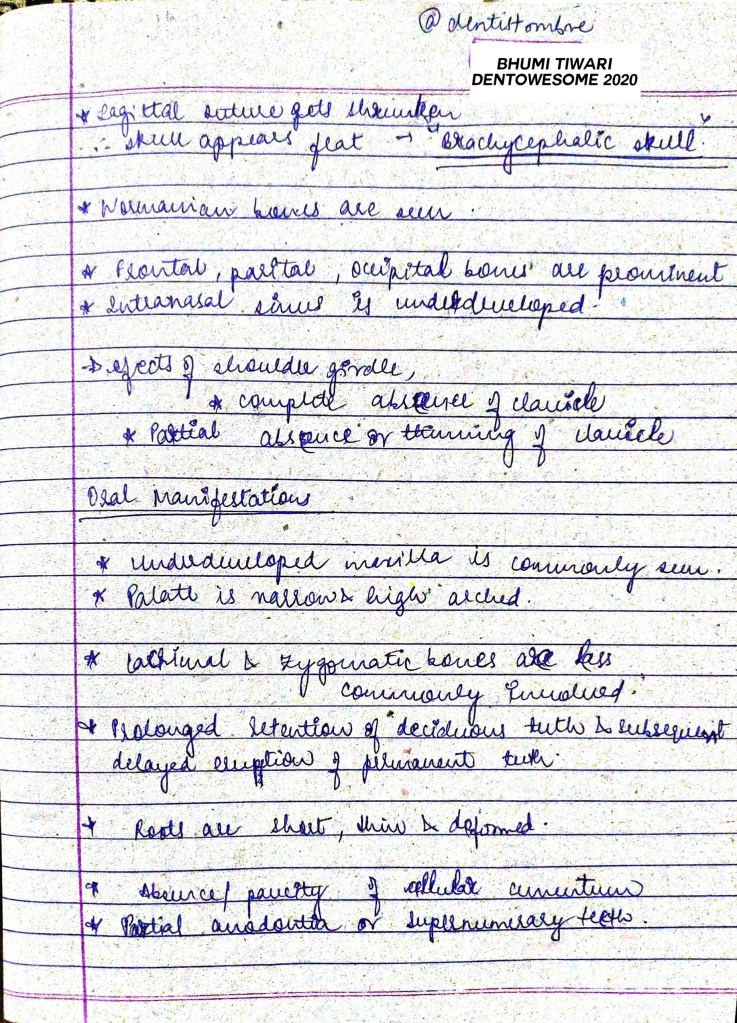 @dentistombre
BHUMI TIWARI
DENTOWESOME 2020
* Sagittal suture gets shrunken
∴ skull appears flat → "Brachycephalic skull."
* Wormanian bones are seen.
* Frontal, parital, occipital bones are prominent
* Intranasal sinus is underdeveloped.
→ Defects of shoulder girdle,
* complete absence of clavicle
* Partial absence or thinning of clavicle
Oral Manifestations
* underdeveloped maxilla is commonly seen.
* Palate is narrow & high arched.
* Lachrimal & zygomatic bones are less
commonly involved.
* Prolonged retention of deciduous teeth & subsequent
delayed eruption of permanent teeth.
* Roots are short, thin & deformed.
* Absence/paucity of cellular cementum
* Partial anodontia or supernumerary teeth.